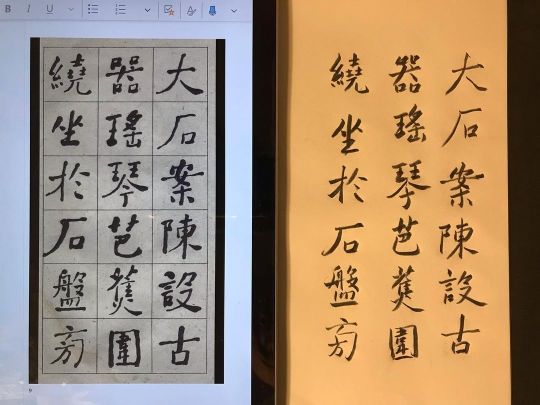 B I U
大石案陳設古
器瑤琴芭蕉圍
繞坐於石盤旁
9
大石案陳設古
器瑤琴芭蕉圍
繞坐於石盤旁